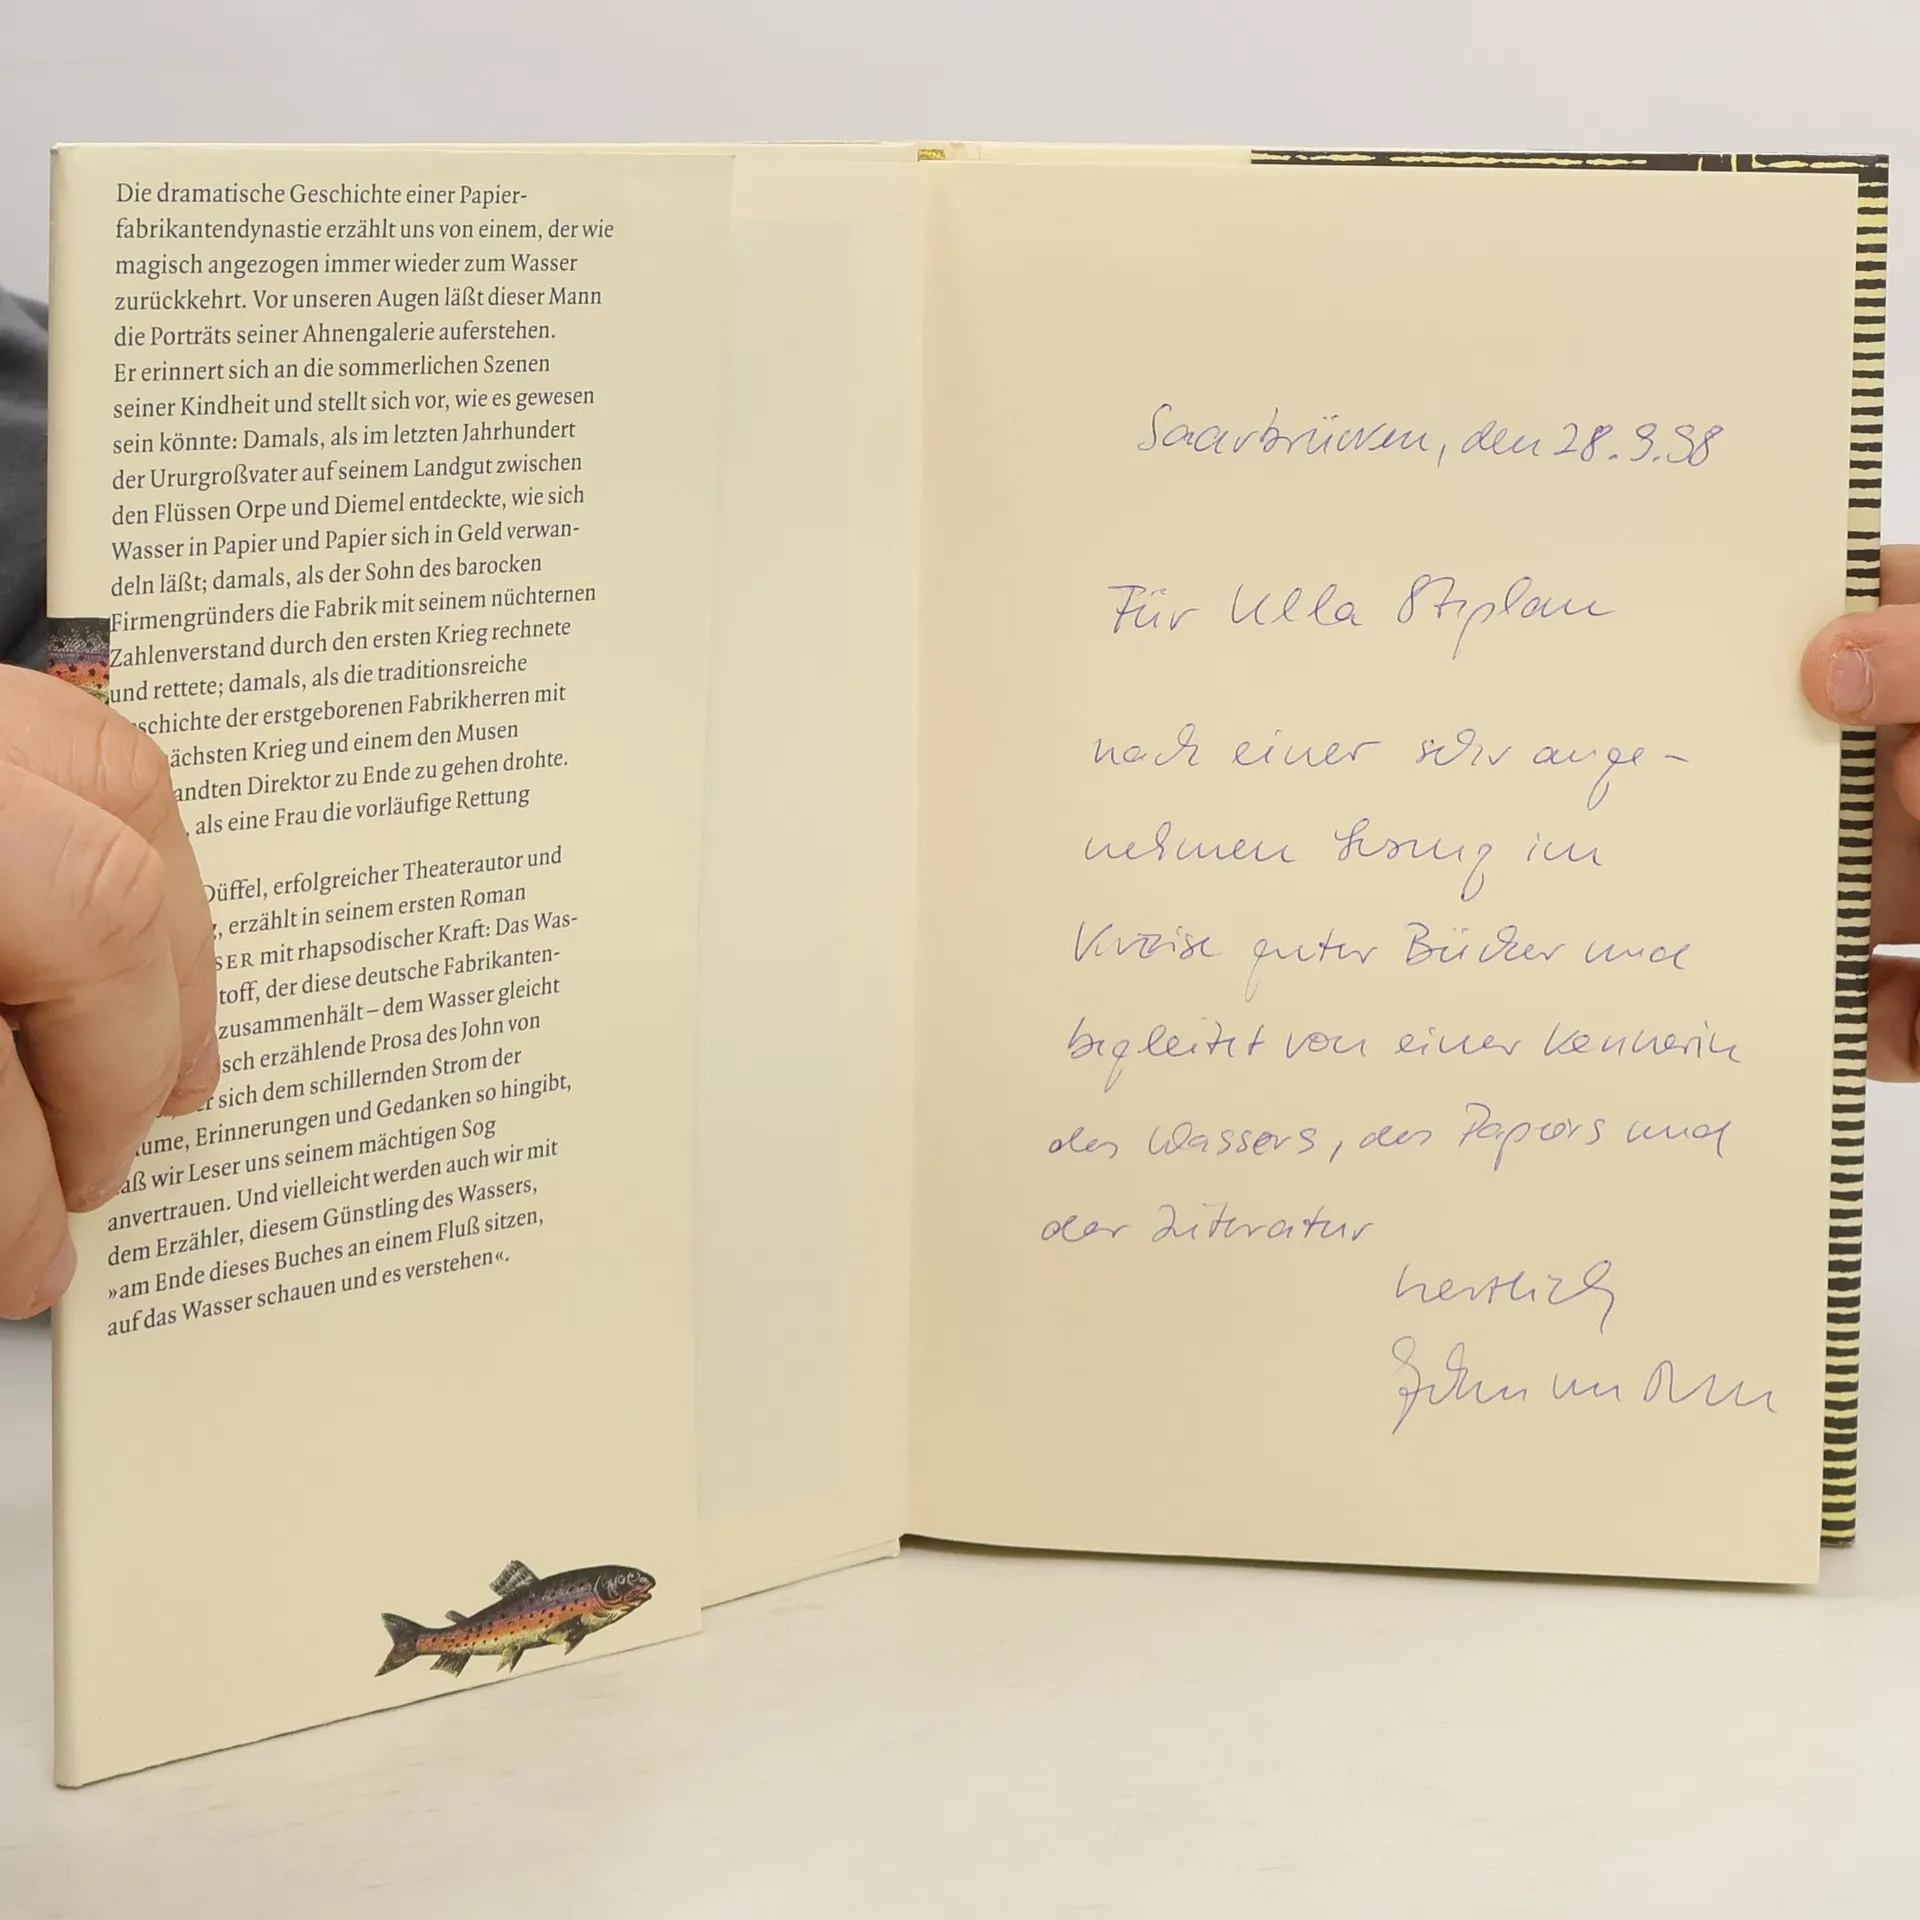 Die dramatische Geschichte einer Papier-
fabrikantendynastie erzählt uns von einem, der wie
magisch angezogen immer wieder zum Wasser
zurückkehrt. Vor unseren Augen läßt dieser Mann
die Porträts seiner Ahnengalerie auferstehen.
Er erinnert sich an die sommerlichen Szenen
seiner Kindheit und stellt sich vor, wie es gewesen
sein könnte: Damals, als im letzten Jahrhundert
der Ururgroßvater auf seinem Landgut zwischen
den Flüssen Orpe und Diemel entdeckte, wie sich
Wasser in Papier und Papier sich in Geld verwan-
deln läßt; damals, als der Sohn des barocken
Firmengründers die Fabrik mit seinem nüchternen
Zahlenverstand durch den ersten Krieg rechnete
und rettete; damals, als die traditionsreiche
schichte der erstgeborenen Fabrikherren mit
ächsten Krieg und einem den Musen
andten Direktor zu Ende zu gehen drohte.
, als eine Frau die vorläufige Rettung
Düffel, erfolgreicher Theaterautor und
, erzählt in seinem ersten Roman
SER mit rhapsodischer Kraft: Das Was-
toff, der diese deutsche Fabrikanten-
zusammenhält – dem Wasser gleicht
sch erzählende Prosa des John von
r sich dem schillernden Strom der
ume, Erinnerungen und Gedanken so hingibt,
aß wir Leser uns seinem mächtigen Sog
anvertrauen. Und vielleicht werden auch wir mit
dem Erzähler, diesem Günstling des Wassers,
»am Ende dieses Buches an einem Fluß sitzen,
auf das Wasser schauen und es verstehen«.
Saarbrücken, den 28.9.98
Für Ulla
nach einer sehr ange-
nehmen Lesung im
Kreise guter Bücher und
begleitet von einer Kennerin
des Wassers, des Papiers und
der Literatur
herzlich
John von